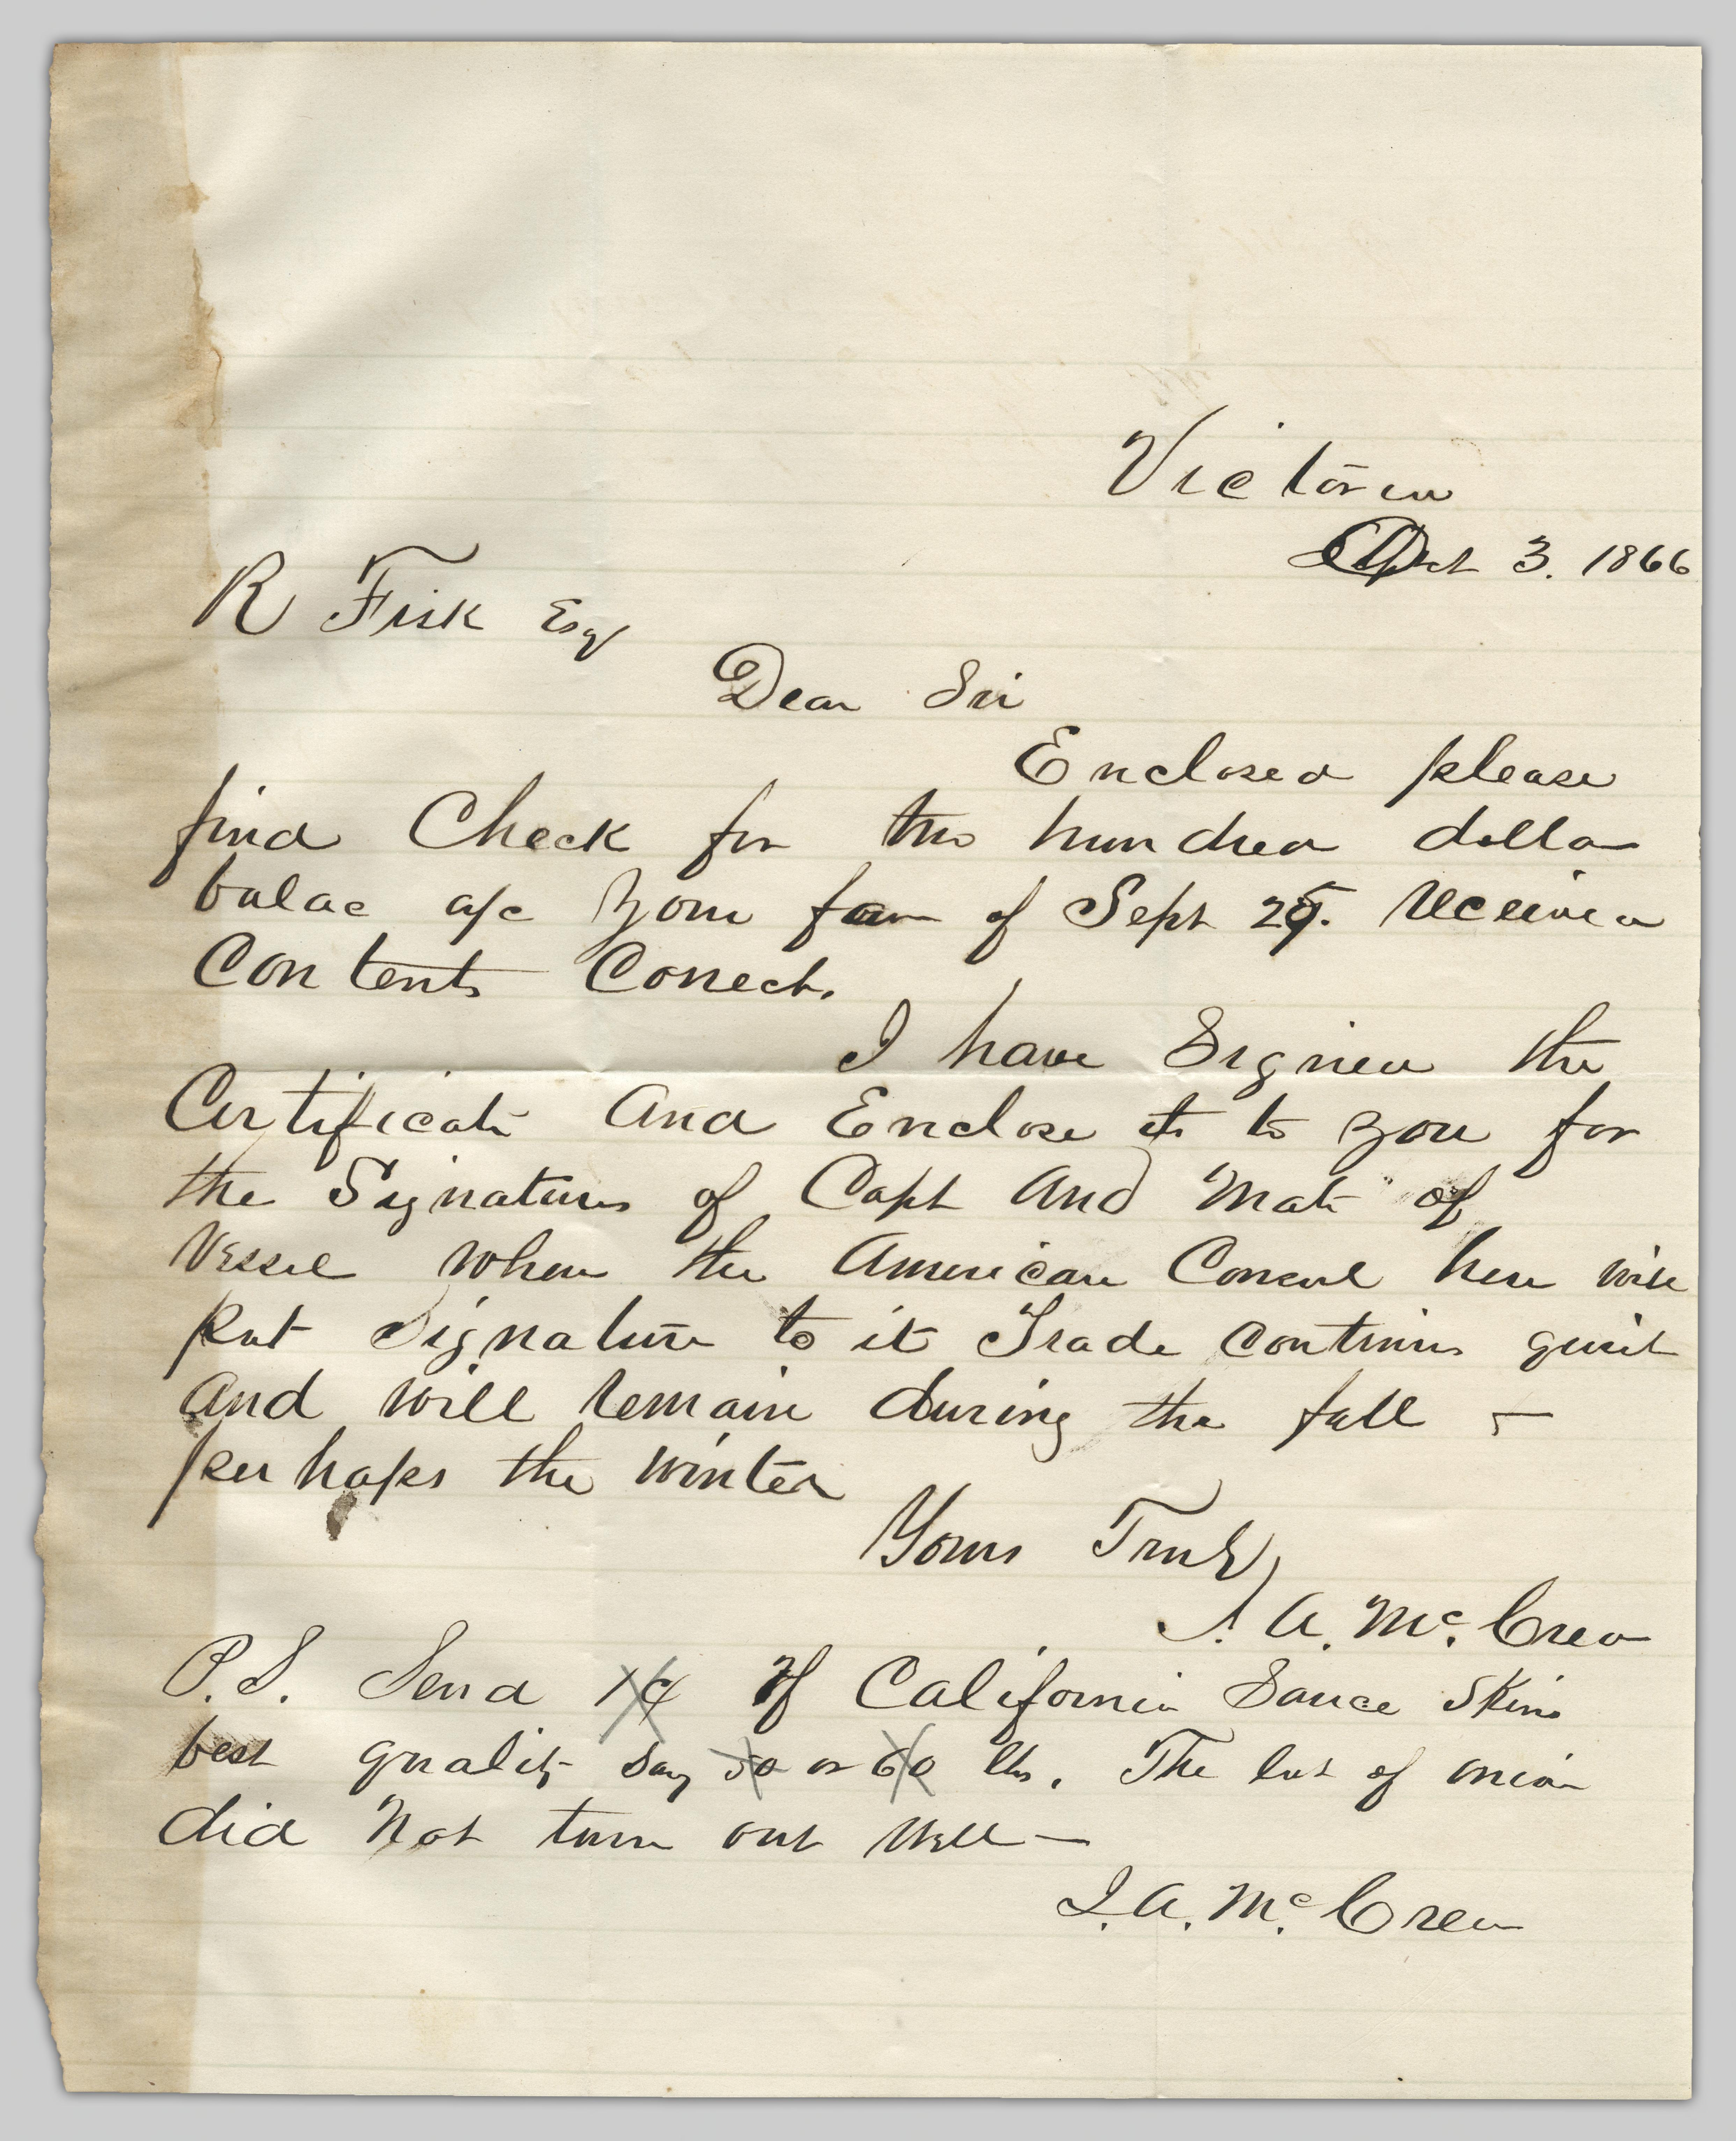 Victoria
Oct 3. 1866
R Fisk Esq
Dear Sir
Enclosed please
find Check for two hundred dollar
balac a/c Your favr of Sept 25. received
Contents Correct.
I have Signed the
Certificate And Enclose it to you for
the Signatures of Capt And Mate of
Vessel when the American Consul here will
put Signature to it Trade continues quiet
And will remain during the fall &
perhaps the winter
Yours Truly
J. A. McCrea
P.S. Send of California Sauce Skins
best quality say 50 or 60 lbs. The lot of onion
did Not turn out well —
J. A. McCrea